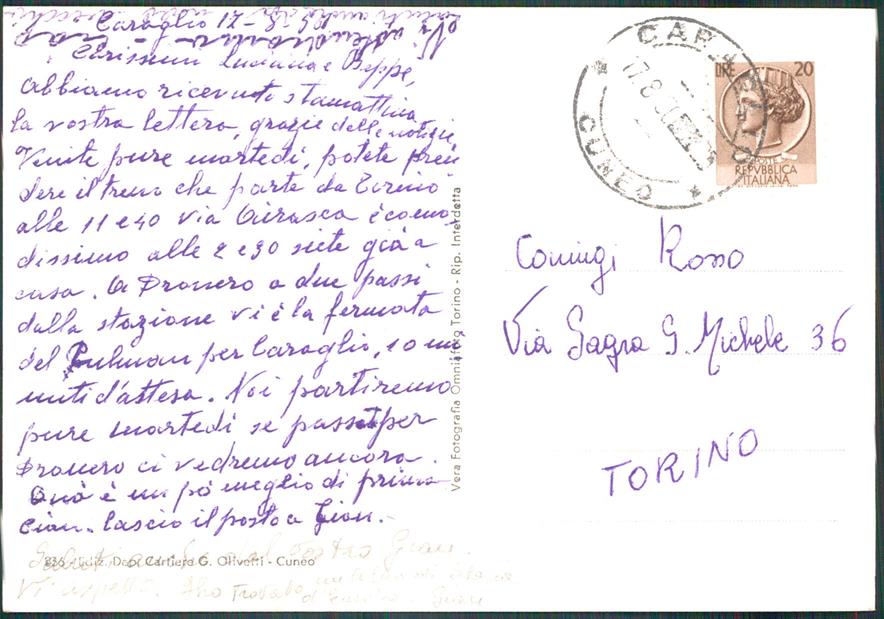 Caraglio
Carissimi Luciana e Beppe,
abbiamo ricevuti stamattina
la vostra lettera, grazie delle notizie.
Venite pure martedi, potete pren
dere il treno che parte da Torino
alle 11 e 40 via Airasca è como
dissimo alle 2 e 30 siete già a
casa. A Dronero a due passi
dalla stazione vi è la fermata
del Pulman per Caraglio, 10 mi
nuti d'attesa. Noi partiremo
pure martedi se passat per
Dronero ci vedremo ancora.
Quà è un pó meglio di prima
ciau. lascio il posto a Gian.-
Gian.
Vi aspetto. Trovato
Gian
836 - Dep. Cartiera G. Olivetti - Cuneo
Vera Fotografia Omniafoto Torino - Rip. Interdetta
CUNEO
LIRE 20
POSTE
REPVBBLICA
ITALIANA
Coniugi Rosso
Via Sagra S. Michele 36
TORINO